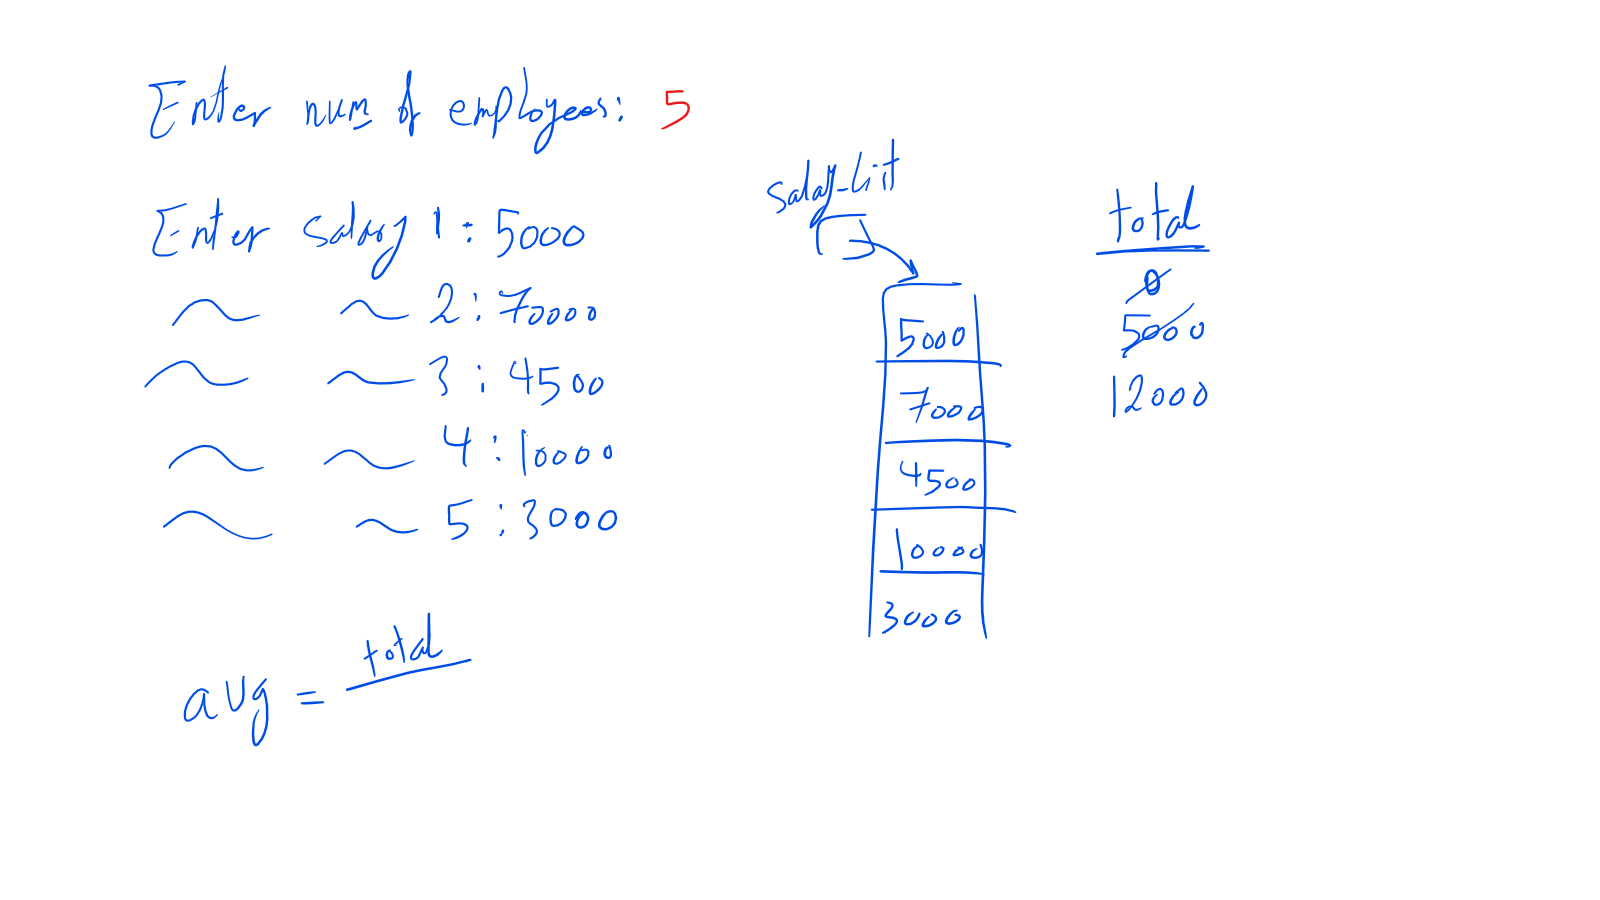 Enter num of employees: 5
Enter salary 1 : 5000
2 : 70000
3 : 4500
4 : 10000
5 : 3000
avg = total
salary_list
5000
7000
4500
10000
3000
total
0
5000
12000